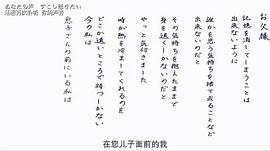 あなたの声 すこし聴きたい
お父様
記憶を消してしまうことは
出来ないように
誰かを思う気持ちを捨て去ることなど
出来ないのだと
その気持ちを抱えたままで
身を退くしかないのだと
やっと気付きました
時が熱を冷ましてくれるのを
どこか遠いところで待つしかない
今の私は
息子さんの前にいる私は
在您儿子面前的我